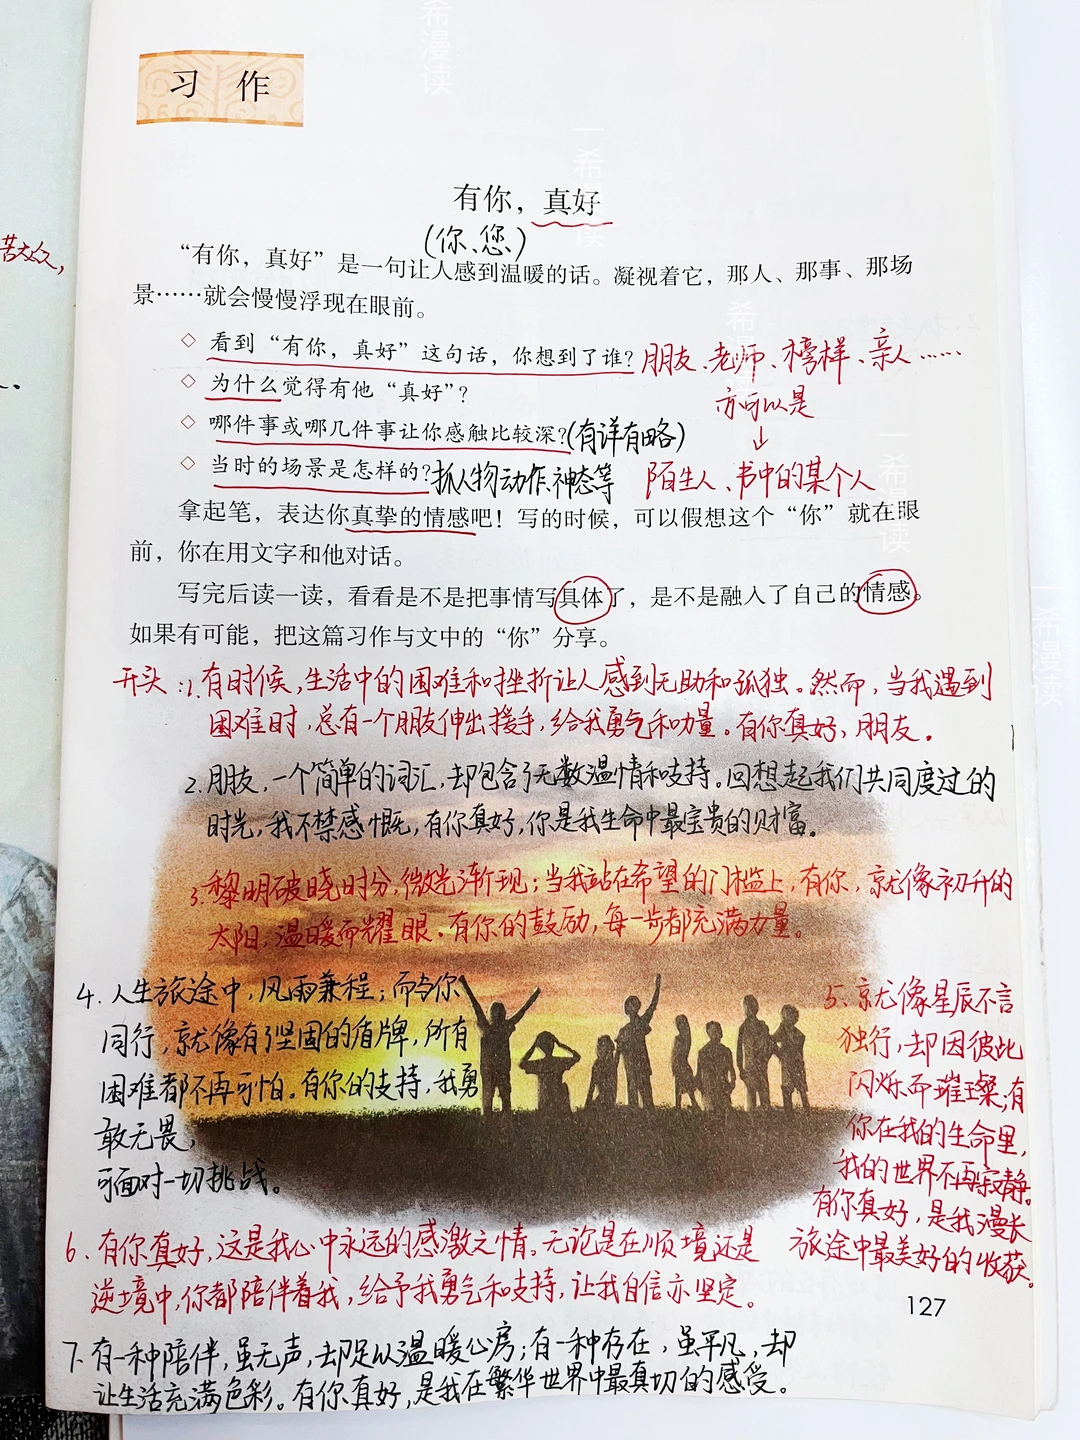 习 作
有你，真好
(你、您)
“有你，真好”是一句让人感到温暖的话。凝视着它，那人、那事、那场
景……就会慢慢浮现在眼前。
◇ 看到“有你，真好”这句话，你想到了谁？朋友、老师、榜样、亲人……
亦可以是
◇ 为什么觉得有他“真好”？
↓
◇ 哪件事或哪几件事让你感触比较深？(有详有略)
◇ 当时的场景是怎样的？抓人物动作、神态等 陌生人、书中的某个人
拿起笔，表达你真挚的情感吧！写的时候，可以假想这个“你”就在眼
前，你在用文字和他对话。
写完后读一读，看看是不是把事情写具体了，是不是融入了自己的情感。
如果有可能，把这篇习作与文中的“你”分享。
开头：1.有时候，生活中的困难和挫折让人感到无助和孤独。然而，当我遇到
困难时，总有一个朋友伸出援手，给我勇气和力量。有你真好，朋友。
2.朋友，一个简单的词汇，却包含了无数温情和支持。回想起我们共同度过的
时光，我不禁感慨，有你真好，你是我生命中最宝贵的财富。
3.黎明破晓时分，微光渐现；当我站在希望的门槛上，有你，就像初升的
太阳，温暖而耀眼。有你的鼓励，每一步都充满力量。
4.人生旅途中，风雨兼程；而与你
同行，就像有了坚固的盾牌，所有
困难都不再可怕。有你的支持，我勇
敢无畏，
可面对一切挑战。
5、就像星辰不言
独行，却因彼此
闪烁而璀璨；有
你在我的生命里，
我的世界不再寂静。
有你真好，是我漫长
旅途中最美好的收获。
6.有你真好，这是我心中永远的感激之情。无论是在顺境还是
逆境中，你都陪伴着我，给予我勇气和支持，让我自信亦坚定。
127
7.有一种陪伴，虽无声，却足以温暖心房；有一种存在，虽平凡，却
让生活充满色彩。有你真好，是我在繁华世界中最真切的感受。
苦太久，
一希漫读